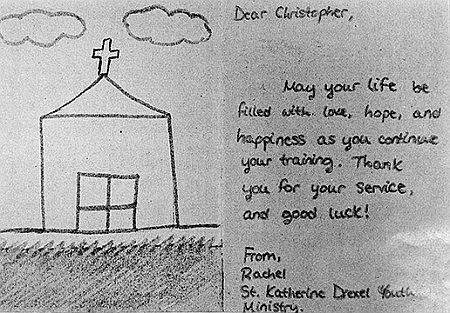 Dear Christopher,
May your life be
filled with love, hope, and
happiness as you continue
your training. Thank
you for your service,
and good luck!
From,
Rachel
St. Katherine Drexel Youth
Ministry.